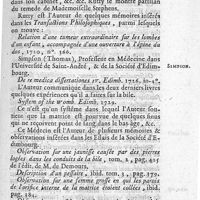 dans son cabinet, &c. &c. Rutty se montre partisan
du remede de Mademoiselle Stephens.
Rutty est l'Auteur de quelques mémoires insérés
dans les Transactions Philosophiques, parmi lesquels
on trouve :
Relation d'une tumeur extraordinaire sur les lombes
d'un enfant, accompagnée d'une ouverture à l'épine du
dos, 1720, n°. 366.
Simpson (Thomas), Professeur en Médecine dans
l'Université de Saint-André, & de la Société d'Edim-
bourg.
SIMPSON.
De re medica dissertationes IV. Edimb. 1726, in-8°.
L'Auteur communique dans les deux derniers livres
quelques expériences qu'il a faites sur la bile.
System of the womb. Edimb. 1729.
C'est ici qu'un systême dans lequel l'Auteur soutient
que la matrice est pourvue de quelques
qui ne reçoivent point de sang dans le bas âge, &c.
Ce Médecin est l'Auteur de plusieurs mémoires &
observations insérées dans les Essais de la Société d'E-
dimbourg.
Observation sur une jaunisse causée par des pierres
logées dans les conduits de la bile, tom. 1, pag. 415
de l'édit. de M. Demours.
Description d'un pessaire, ibid. tom. 3, pag. 370.
Observation sur une femme grosse en qui les parois
de l'orifice interne de la matrice étoient collées, ibid.
pag. 381.